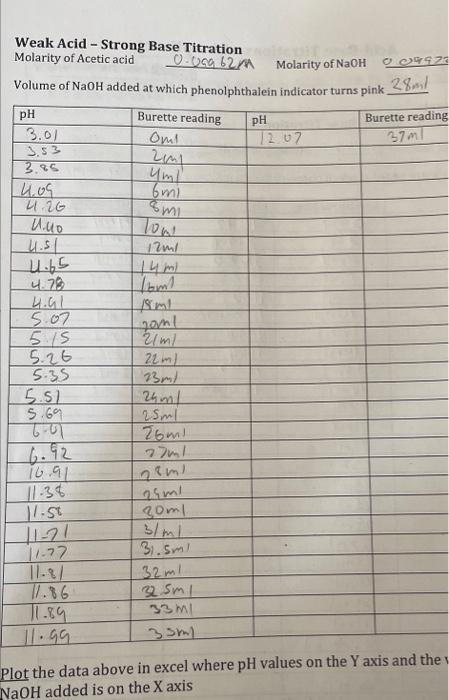 Weak Acid – Strong Base Titration
Molarity of Acetic acid 0.09962M Molarity of NaOH
Volume of NaOH added at which phenolphthalein indicator turns pink 28ml
pH Burette reading pH Burette reading
3.01 0ml 12.07 37ml
3.53 2ml
3.85 4ml
4.09 6ml
4.26 8ml
4.40 10ml
4.51 12ml
4.65 14ml
4.78 16ml
4.91 18ml
5.07 20ml
5.15 21ml
5.26 22ml
5.35 23ml
5.51 24ml
5.69 25ml
6.01 26ml
6.92 27ml
10.91 28ml
11.38 29ml
11.58 30ml
11.71 31ml
11.77 31.5ml
11.81 32ml
11.86 32.5ml
11.89 33ml
11.99 35ml
Plot the data above in excel where pH values on the Y axis and the
NaOH added is on the X axis